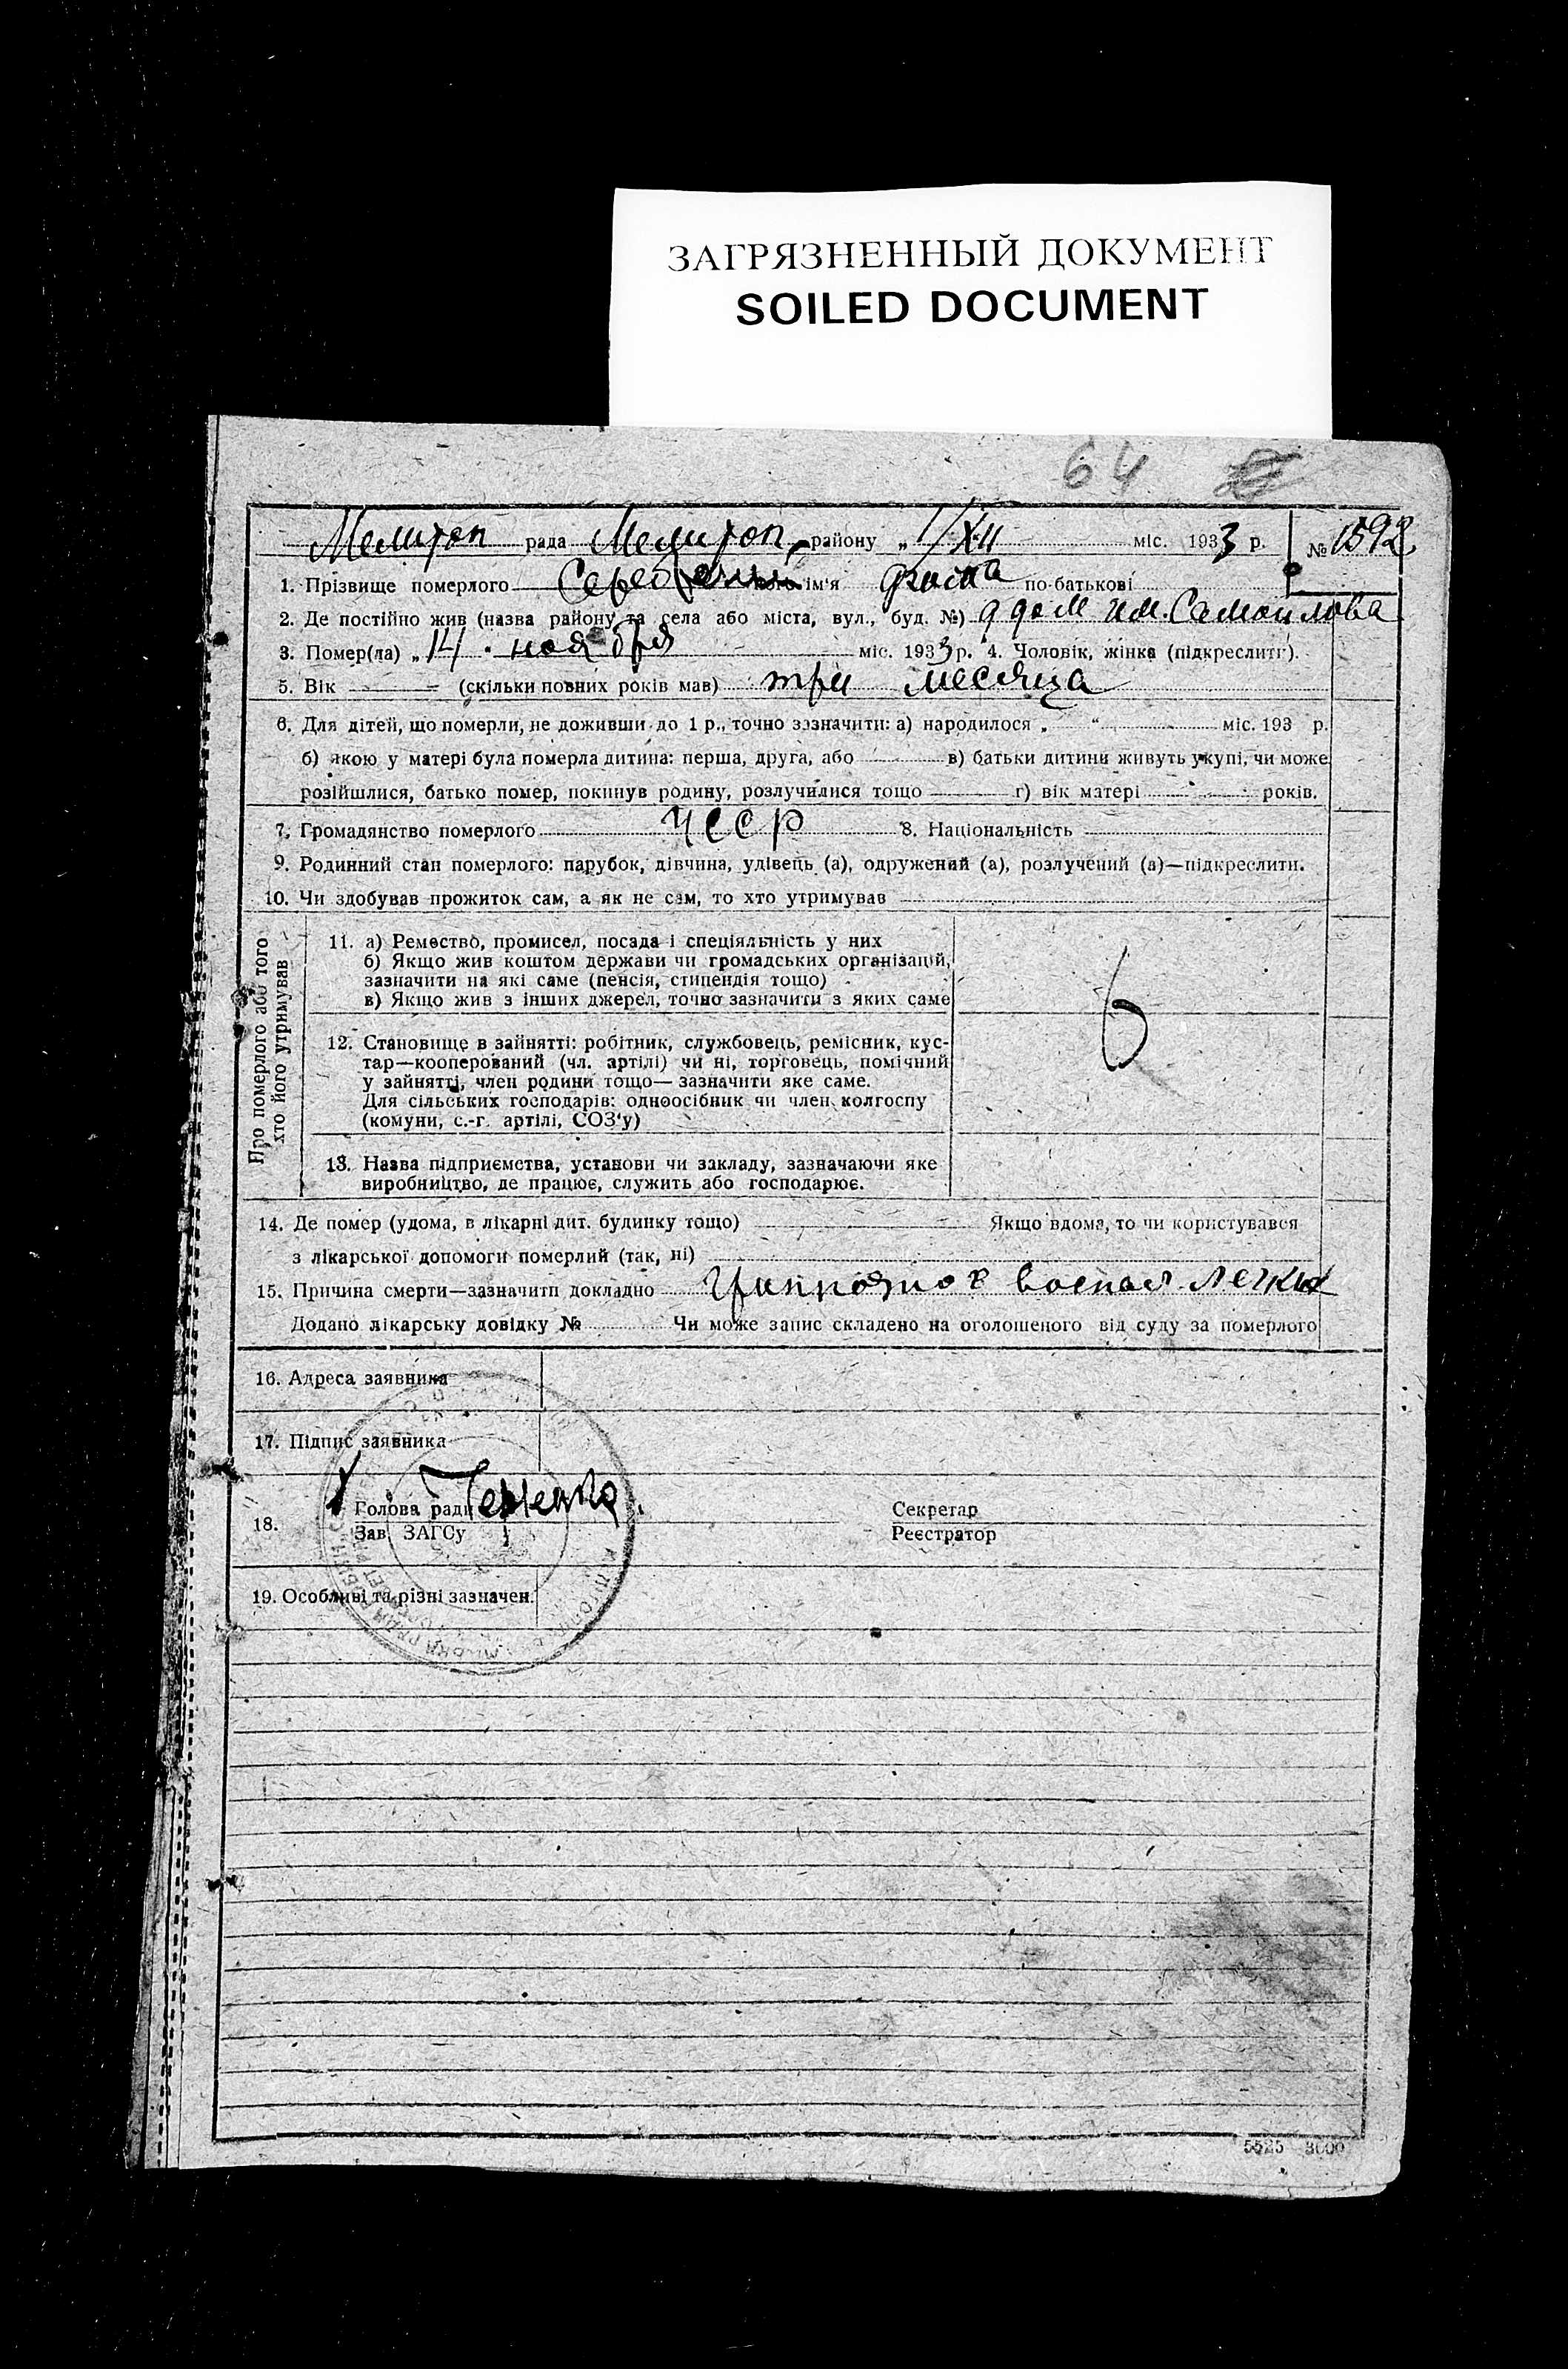 ЗАГРЯЗНЕННЫЙ ДОКУМЕНТ
SOILED DOCUMENT
64
Мелитоп рада Мелитоп. району „1/XII міс. 1933 р. № 1592.
1. Прізвище померлого ім'я по-батькові
2. Де постійно жив (назва району та села або міста, вул., буд. №) д дом им. Самойлова
3. Помер(ла) „14. ноября міс. 1933 р. 4. Чоловік, жінка (підкреслити).
5. Вік — (скільки повних років мав) три месяца
6. Для дітей, що померли, не доживши до 1 р., точно зазначити: а) народилося „ “ міс. 193 р.
б) якою у матері була померла дитина: перша, друга, або в) батьки дитини живуть укупі, чи може
розійшлися, батько помер, покинув родину, розлучилися тощо г) вік матері років.
7. Громадянство померлого УССР 8. Національність
9. Родинний стан померлого: парубок, дівчина, удівець (а), одружений (а), розлучений (а)—підкреслити.
10. Чи здобував прожиток сам, а як не сам, то хто утримував
Про померлого або того
хто його утримував
11. а) Ремество, промисел, посада і спеціяльність у них
б) Якщо жив коштом держави чи громадських організацій,
зазначити на які саме (пенсія, стипендія тощо)
в) Якщо жив з інших джерел, точно зазначити з яких саме
6
12. Становище в зайнятті: робітник, службовець, ремісник, кус-
тар—кооперований (чл. артілі) чи ні, торговець, помічний
у зайнятті, член родини тощо— зазначити яке саме.
Для сільських господарів: одноосібник чи член колгоспу
(комуни, с.-г. артілі, СОЗ'у)
13. Назва підприємства, установи чи закладу, зазначаючи яке
виробництво, де працює, служить або господарює.
14. Де помер (удома, в лікарні дит. будинку тощо) Якщо вдома, то чи користувався
з лікарської допомоги померлий (так, ні)
15. Причина смерти—зазначити докладно воспал легких
Додано лікарську довідку № Чи може запис складено на оголошеного від суду за померлого
16. Адреса заявника
17. Підпис заявника
18. Голова ради
Зав. ЗАГСу
Секретар
Реєстратор
19. Особливі та різні зазначен.
5525 3000